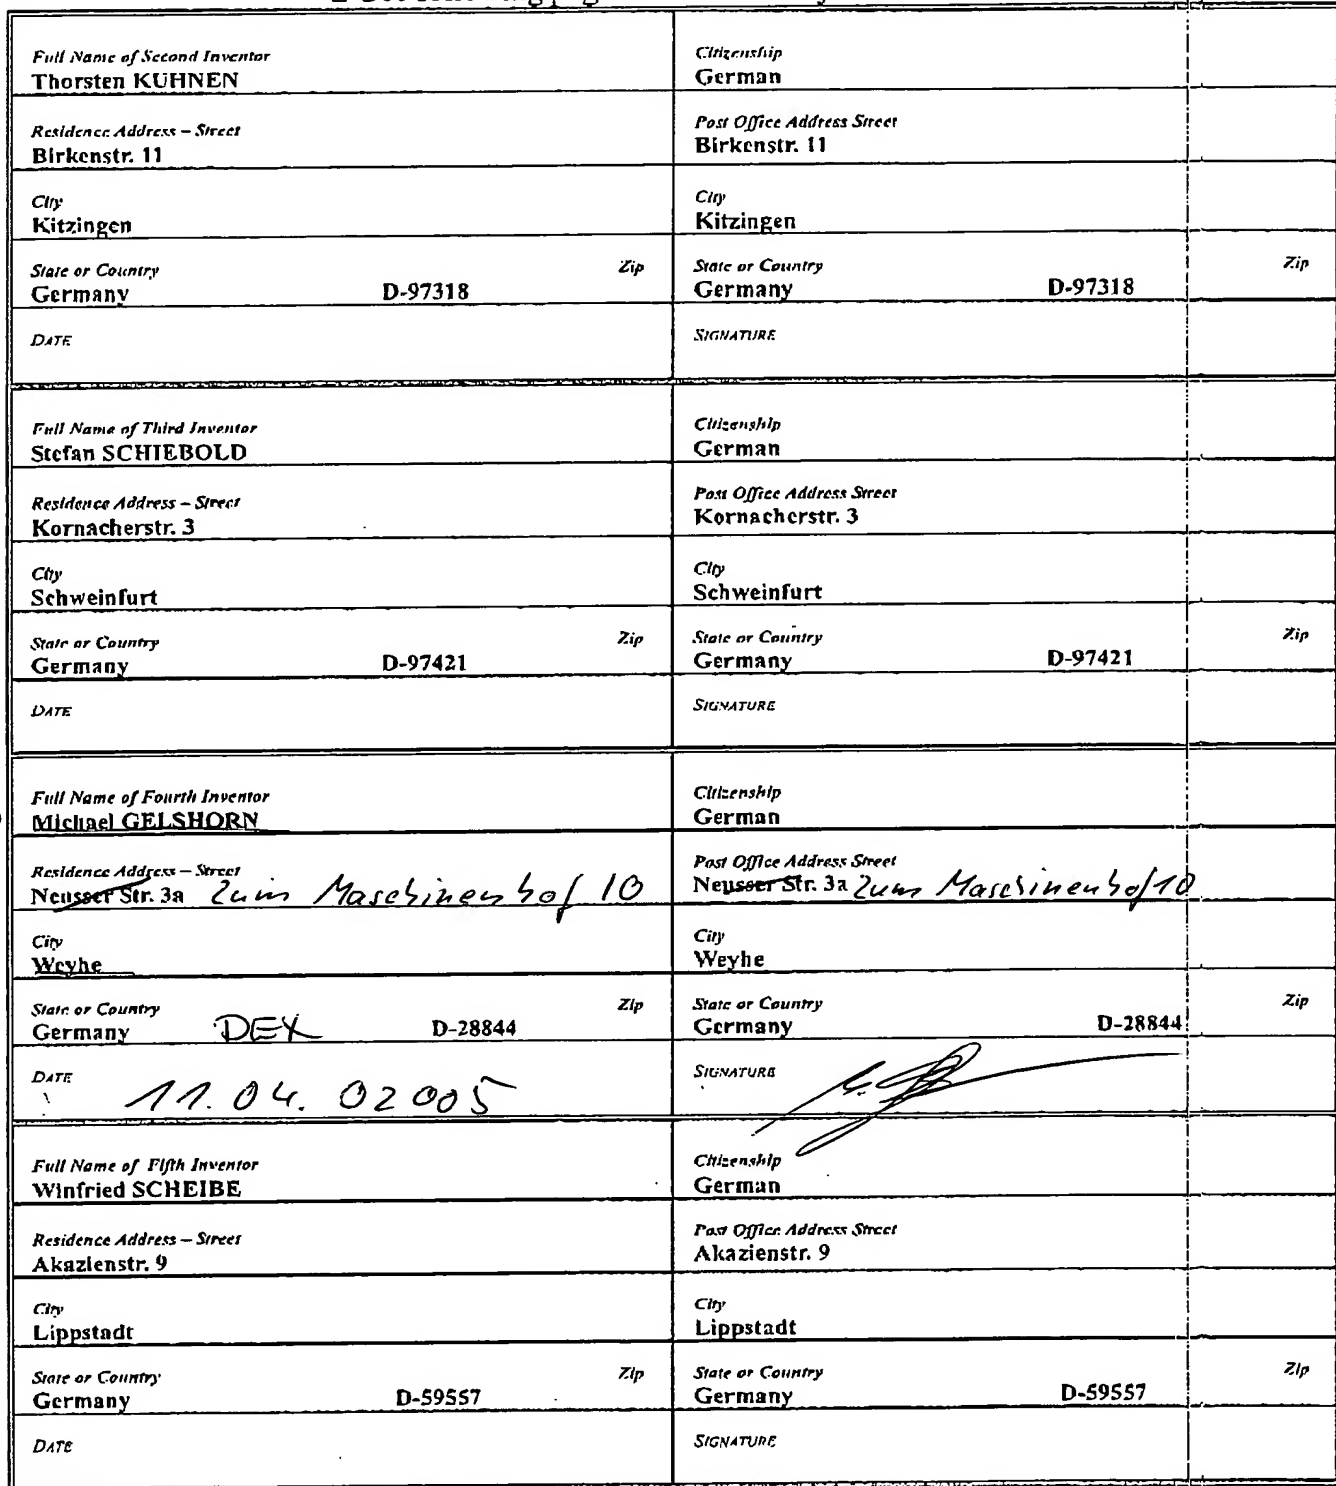 Full Name of Second Inventor
Thorsten KÜHNEN
Citizenship
German
Residence Address – Street
Birkenstr. 11
Post Office Address Street
Birkenstr. 11
City
Kitzingen
City
Kitzingen
State or Country Zip
Germany D-97318
State or Country Zip
Germany D-97318
DATE
SIGNATURE
Full Name of Third Inventor
Stefan SCHIEBOLD
Citizenship
German
Residence Address – Street
Kornacherstr. 3
Post Office Address Street
Kornacherstr. 3
City
Schweinfurt
City
Schweinfurt
State or Country Zip
Germany D-97421
State or Country Zip
Germany D-97421
DATE
SIGNATURE
Full Name of Fourth Inventor
Michael GELSHORN
Citizenship
German
Residence Address – Street
Neusser Str. 3a Zum Maschinenhof 10
Post Office Address Street
Neusser Str. 3a Zum Maschinenhof 10
City
Weyhe
City
Weyhe
State or Country Zip
Germany DEX D-28844
State or Country Zip
Germany D-28844
DATE
11.04.02005
SIGNATURE
Full Name of Fifth Inventor
Winfried SCHEIBE
Citizenship
German
Residence Address – Street
Akazienstr. 9
Post Office Address Street
Akazienstr. 9
City
Lippstadt
City
Lippstadt
State or Country Zip
Germany D-59557
State or Country Zip
Germany D-59557
DATE
SIGNATURE